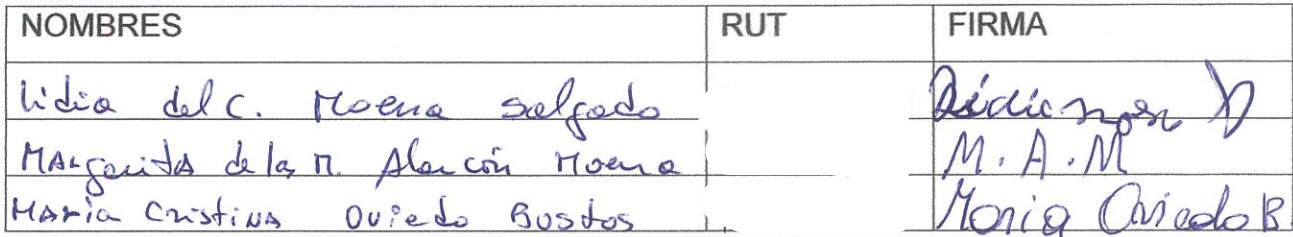 NOMBRES RUT FIRMA
Lidia del C. Moena Salgado
MARgaritA de las M. Alarcón Moena M.A.M
MARía CristiNA Oviedo Bustos Maria Oviedo B